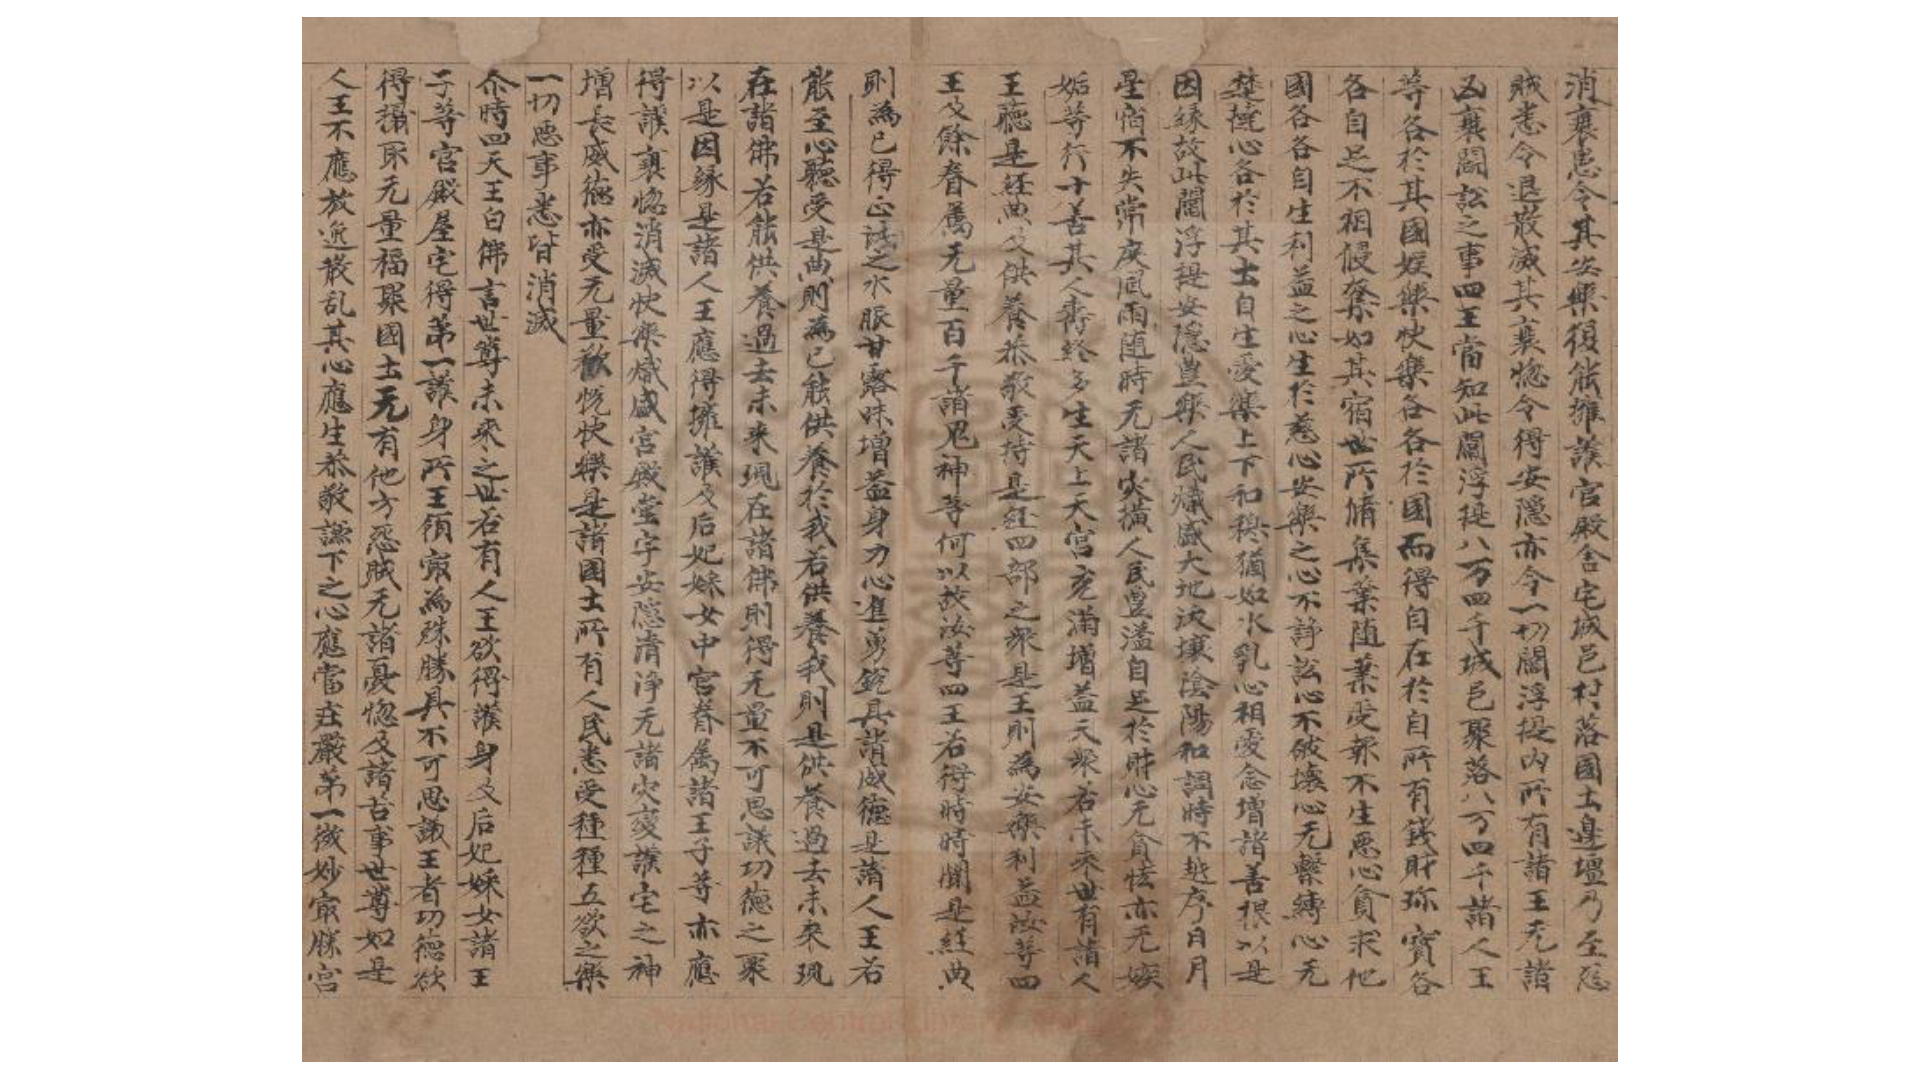 消衰患令其安樂復能擁護宮殿舍宅城邑村落國土邊壃乃至怨
賊悉令退散滅其衰惱令得安隱亦令一切閻浮提內所有諸王无諸
凶衰鬪訟之事四王當知此閻浮提八万四千城邑聚落八万四千諸人王
等各於其國娛樂快樂各各於國而得自在於自所有錢財珎寶各
各自足不相侵奪如其宿世所脩集業隨業受報不生惡心貪求他
國各各自生利益之心生於慈心安樂之心不諍訟心不破壞心无繫縛心无
楚撻心各於其土自生愛樂上下和穆猶如水乳心相愛念增諸善根以是
因緣故此閻浮提安隱豐樂人民熾盛大地沃壤陰陽和調時不越序日月
星宿不失常度風雨隨時无諸灾橫人民豐溢自足於財心无貪恡亦无嫉
妬等行十善其人壽終多生天上天宮充滿增益天衆若未來世有諸人
王聽是經典及供養恭敬受持是經四部之衆是王則為安樂利益汝等四
王及餘眷屬无量百千諸鬼神等何以故汝等四王若得時時聞是經典
則為已得正法之水服甘露味增益身力心進勇銳具諸威德是諸人王若
能至心聽受是典則為已能供養於我若供養我則是供養過去未來現
在諸佛若能供養過去未來現在諸佛則得无量不可思議功德之聚
以是因緣是諸人王應得擁護及后妃婇女中宮眷屬諸王子等亦應
得護衰惱消滅快樂熾盛宮殿堂宇安隱清淨无諸灾變護宅之神
增長威德亦受无量歡悅快樂是諸國土所有人民悉受種種五欲之樂
一切惡事悉皆消滅
尒時四天王白佛言世尊未來之世若有人王欲得護身及后妃婇女諸王
子等宮殿屋宅得第一護身所王領㝡為殊勝具不可思議王者功德欲
得攝取无量福聚國土无有他方怨賊无諸憂惱及諸苦事世尊如是
人王不應放逸散乱其心應生恭敬謙下之心應當莊嚴第一微妙㝡勝宮
National Central Library